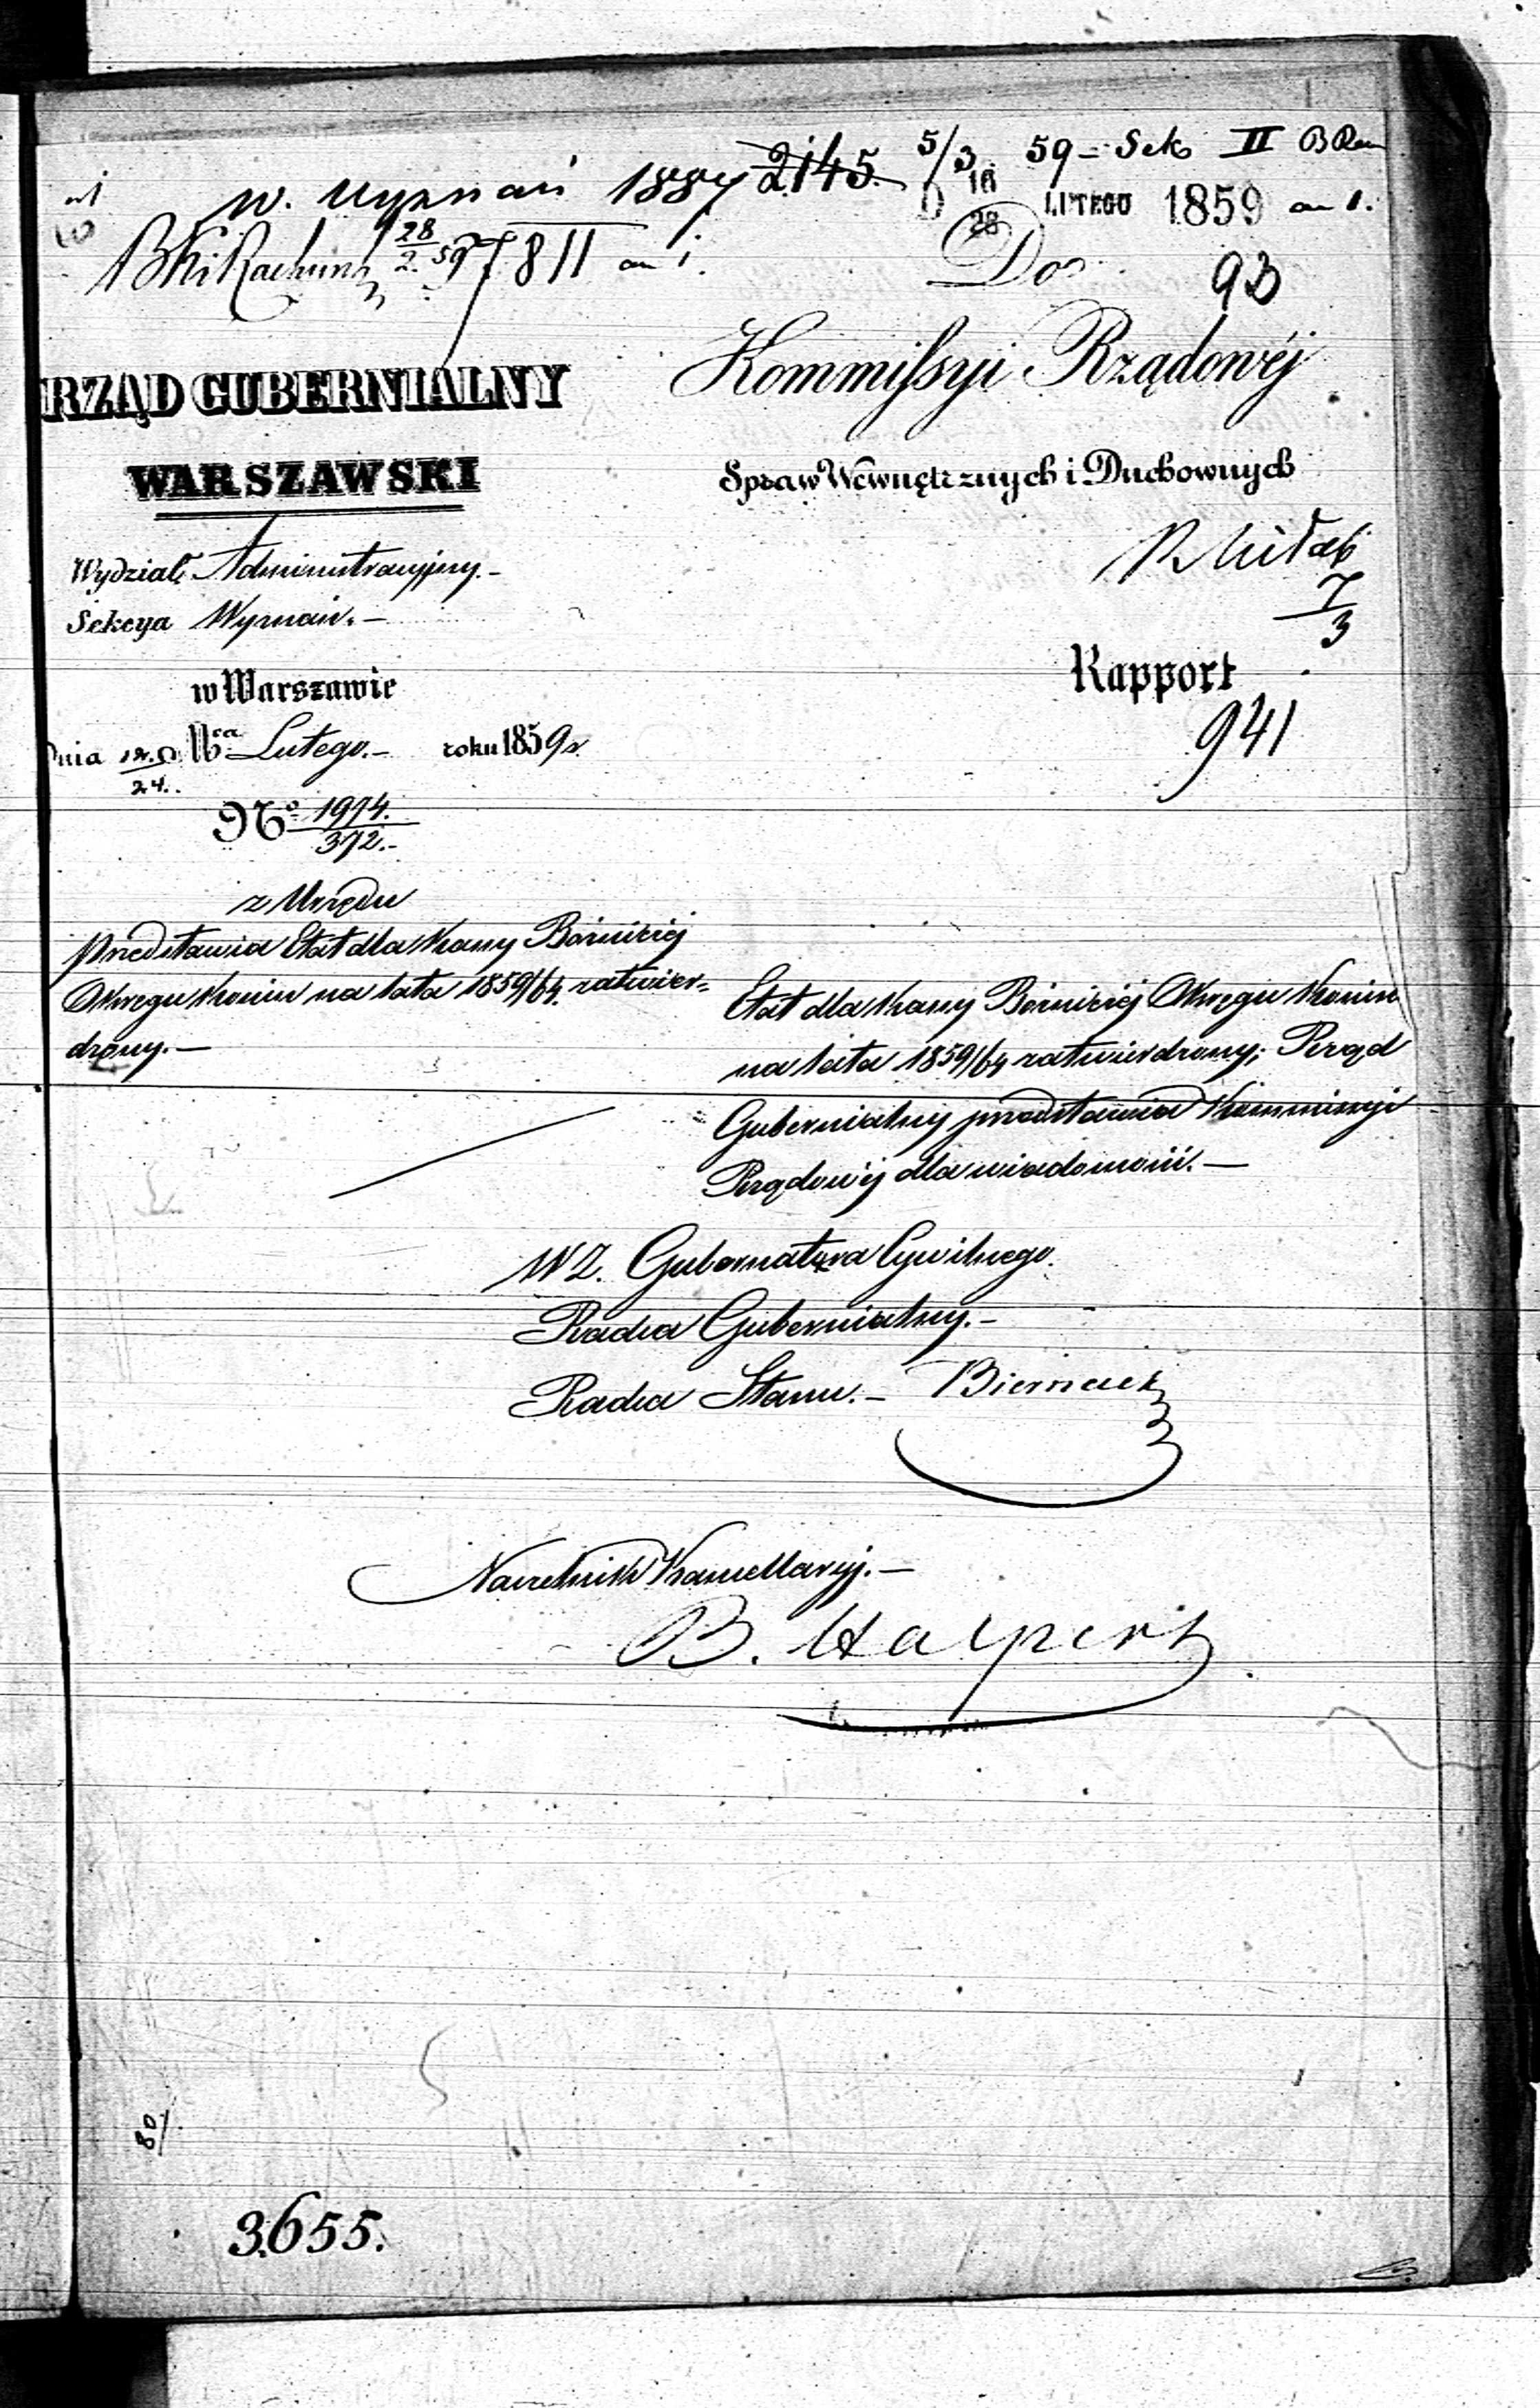 W. Wyznań 1887 2145. 5/3 59 - Sek II
D 16/28 LUTEGO 1859 an 1.
28/2 59 7811 an 1.
Do
93
RZĄD GUBERNIALNY
WARSZAWSKI
Kommissyi Rządowéj
Spraw Wewnętrznych i Duchownych
Wydział Administracyjny.-
Sekcya Wyznań.-
7/3
w Warszawie
Rapport
941
Dnia 12/24. Mca Lutego.- roku 1859 r.
No 1974./372.-
z Urzędu
Przedstawia Etat dla Kassy Bóżniczéj
Okręgu Konin na lata 1859/64. zatwier=
dzony.-
Etat dla Kassy Bóżniczéj Okręgu Konin
na lata 1859/64 zatwierdzony; Rząd
Gubernialny przedstawia Kommissyi
Rządowéj dla wiadomości.-
W Z. Gubernatora Cywilnego.
Radca Gubernialny.-
Radca Stanu.- Biernacki
Naczelnik Kancellaryi.-
B. Halpert
80/.
3655.